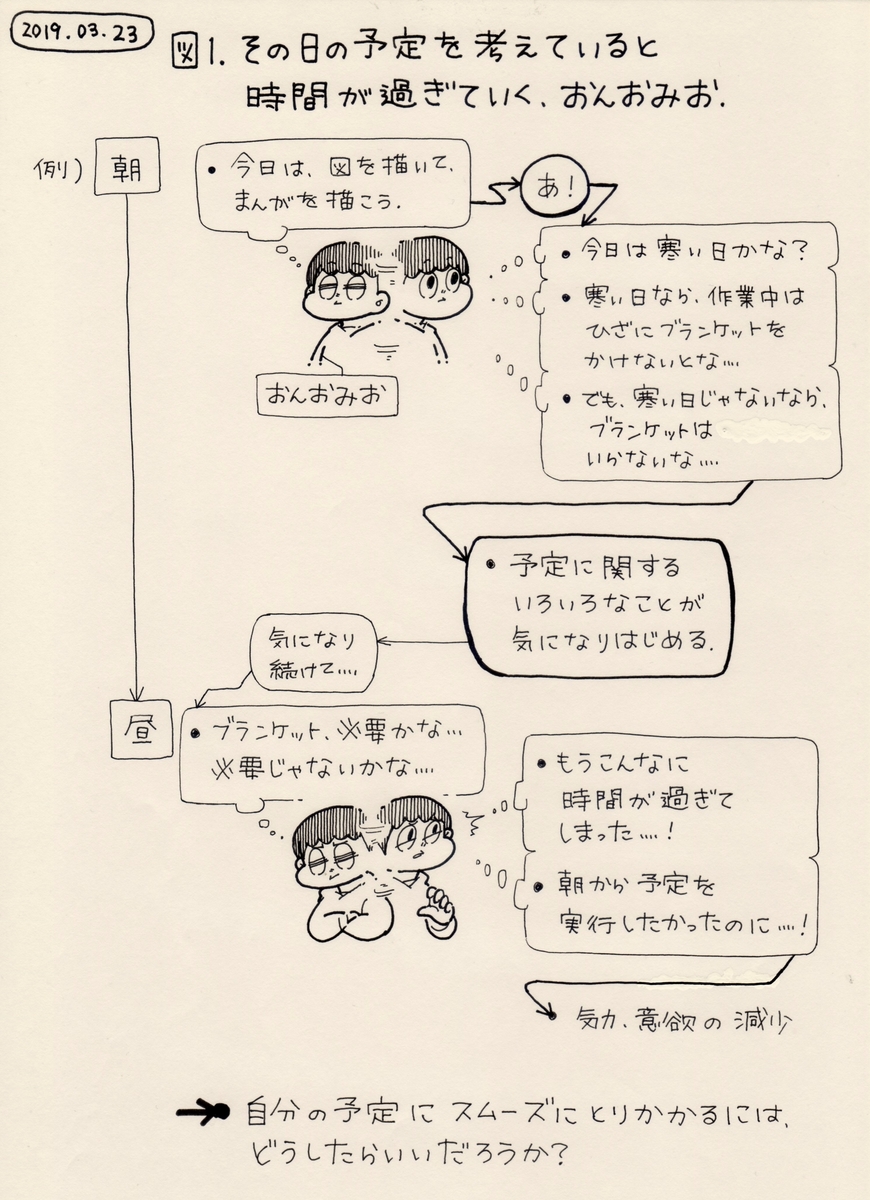 2019.03.23
図1. その日の予定を考えていると
時間が過ぎていく、おんおみお.
例)
朝
• 今日は、図を描いて、
まんがを描こう.
あ!
• 今日は寒い日かな?
• 寒い日なら、作業中は
ひざにブランケットを
かけないとな....
• でも、寒い日じゃないなら、
ブランケットは
いらないな....
おんおみお
• 予定に関する
いろいろなことが
気になりはじめる.
気になり
続けて....
昼
• ブランケット、必要かな...
必要じゃないかな....
• もうこんなに
時間が過ぎて
しまった....!
• 朝から予定を
実行したかったのに....!
• 気力、意欲の減少
→ 自分の予定にスムーズにとりかかるには、
どうしたらいいだろうか?